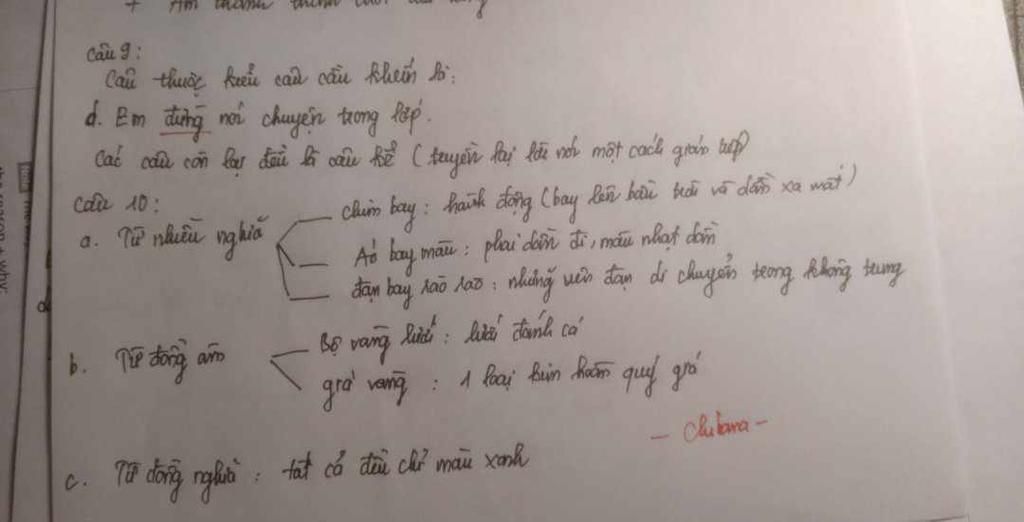 + Âm thanh
Câu 9:
Câu thuộc kiểu câu cầu khiến là:
d. Em đừng nói chuyện trong lớp.
Các câu còn lại đều là câu kể (truyền lại lời nói một cách gián tiếp)
Câu 10:
a. Từ nhiều nghĩa
chim bay: hành động (bay lên bầu trời và dần xa mất)
Áo bay màu: phai dần đi, màu nhạt dần
đạn bay rào rào: những viên đạn di chuyển trong không trung
b. Từ đồng âm
Bộ vàng lưới: lưới đánh cá
giá vàng: 1 loại kim hoàn quý giá
- Chibana -
c. Từ đồng nghĩa: tất cả đều chỉ màu xanh